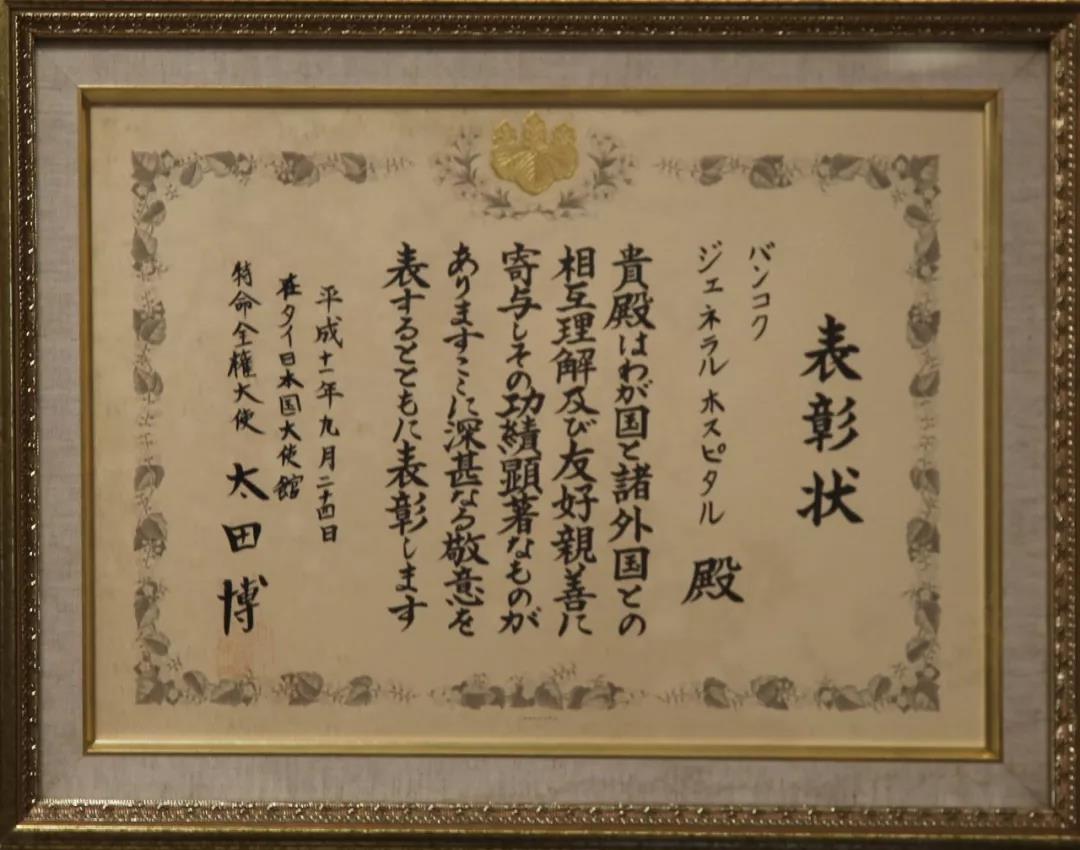 表彰状
バンコク
ジェネラルホスピタル 殿
貴殿はわが国と諸外国との
相互理解及び友好親善に
寄与しその功績顕著なものが
ありますここに深甚なる敬意を
表するとともに表彰します
平成十一年九月二十四日
在タイ日本国大使館
特命全権大使 太田博